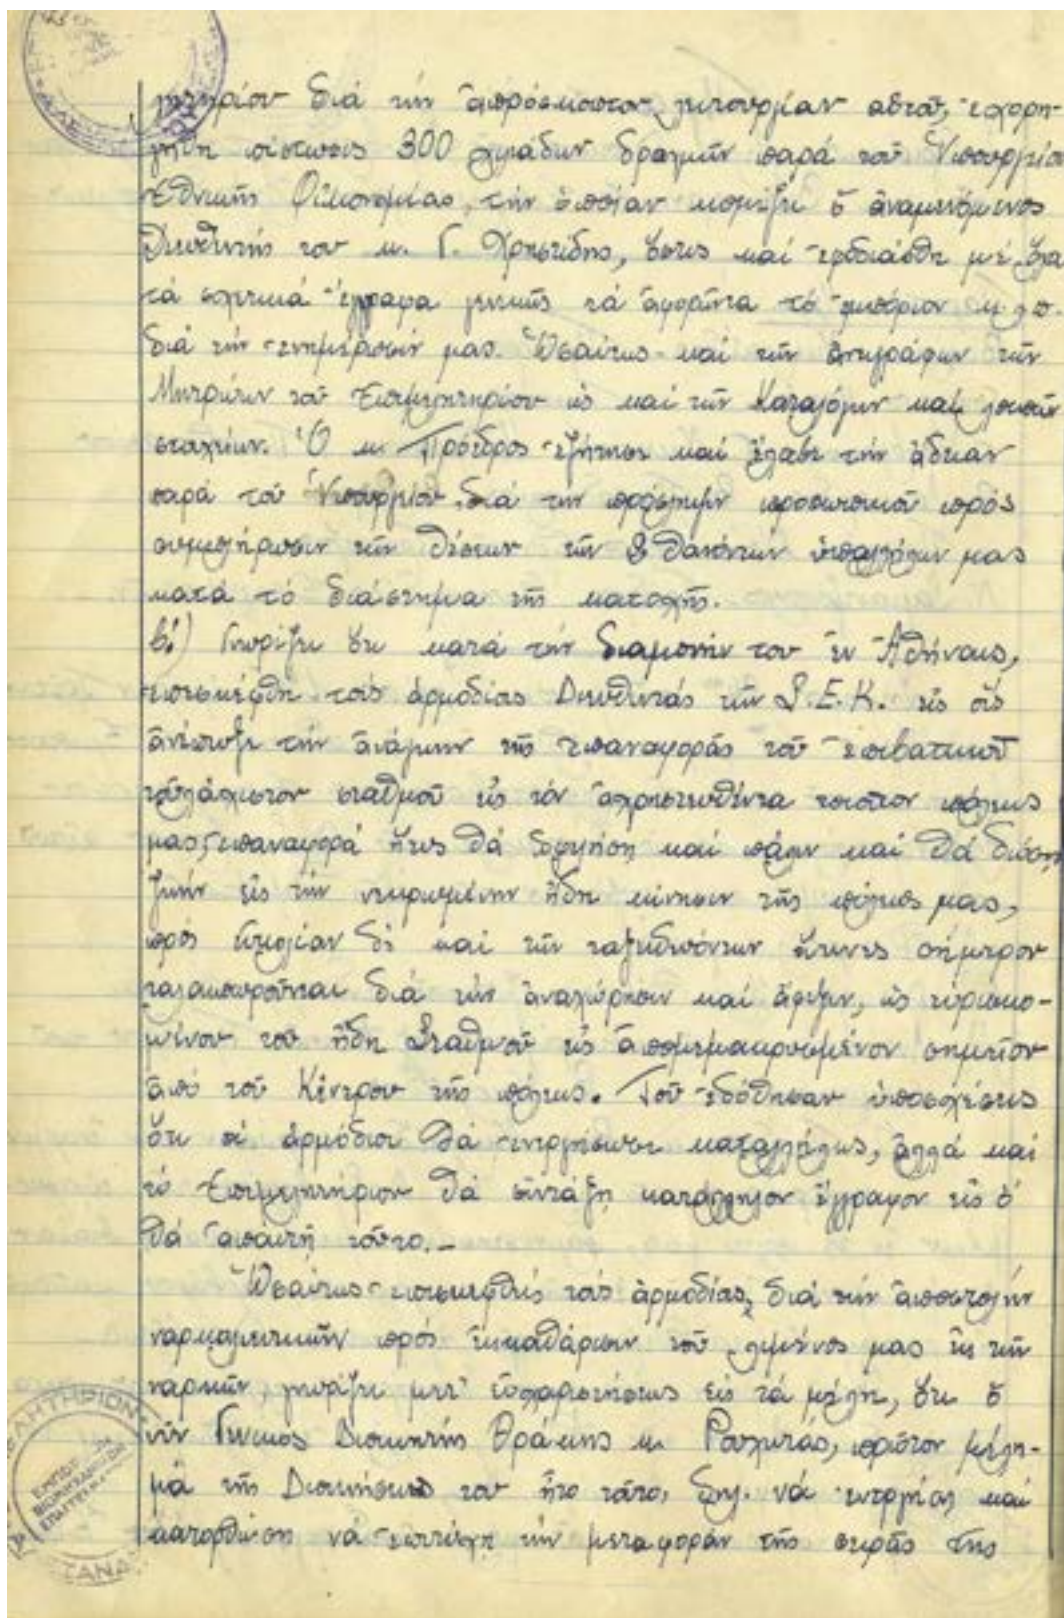 μητηρίου διά τήν ἀπρόσκοπτον λειτουργίαν αὐτοῦ, ἐχορη-
γήθη πίστωσις 300 χιλιάδων δραχμῶν παρά τοῦ Ὑπουργείου
Ἐθνικῆς Οἰκονομίας, τήν ὁποίαν κομίζει ὁ ἀναμενόμενος
Διευθυντής του κ. Γ. Χρηστίδης, ὅστις καί ἐφοδιάσθη μέ ὅλα
τά σχετικά ἔγγραφα γενικῶς τά ἀφορῶντα τό ἐμπόριον κ.λ.π.
διά τήν ἐνημέρωσίν μας. Ὡσαύτως καί τῶν ἀντιγράφων τῶν
Μητρώων τοῦ Ἐπιμελητηρίου ὡς καί τῶν Καταλόγων καί λοιπῶν
στοιχείων. Ὁ κ. Πρόεδρος ἐζήτησε καί ἔλαβε τήν ἄδειαν
παρά τοῦ Ὑπουργείου διά τήν πρόσληψιν προσωπικοῦ πρός
συμπλήρωσιν τῶν θέσεων τῶν 2 θανόντων ὑπαλλήλων μας
κατά τό διάστημα τῆς κατοχῆς.
β΄.) Γνωρίζει ὅτι κατά τήν διαμονήν του ἐν Ἀθήναις,
ἐπεσκέφθη τούς ἁρμοδίους Διευθυντάς τῶν Σ.Ε.Κ. εἰς οὕς
ἀνέπτυξε τήν ἀνάγκην τῆς ἐπαναφορᾶς τοῦ ἐπιβατικοῦ
τοὐλάχιστον σταθμοῦ εἰς τόν ἀχρηστευθέντα τοιοῦτον πόλεως
μας, ἐπαναφορά ἥτις θά ὠφελήση καί πάλιν καί θά δώση
ζωήν εἰς τήν νεκρωμένην ἤδη κίνησιν τῆς πόλεώς μας,
πρός εὐκολίαν δέ καί τῶν ταξειδευόντων οἵτινες σήμερον
ταλαιπωροῦνται διά τήν ἀναχώρησιν καί ἄφιξιν, ὡς εὑρισκο-
μένου τοῦ ἤδη Σταθμοῦ εἰς ἀπομεμακρυσμένον σημεῖον
ἀπό τοῦ Κέντρου τῆς πόλεως. Τοῦ ἐδόθησαν ὑποσχέσεις
ὅτι οἱ ἁρμόδιοι θά ἐνεργήσωσι καταλλήλως, ἀλλά καί
τό Ἐπιμελητήριον θά συντάξη κατάλληλον ἔγγραφον εἰς ὅ
θά ἀπαιτῆ τοῦτο.-
Ὡσαύτως ἐπισκεφθείς τούς ἁρμοδίους, διά τήν ἀποστολήν
ναρκαλιευτικῶν πρός ἐκκαθάρισιν τοῦ λιμένος μας ἐκ τῶν
ναρκῶν, γνωρίζει μετ' εὐχαριστήσεως εἰς τά μέλη, ὅτι ὁ
νῦν Γενικός Διοικητής Θράκης κ. πρῶτον μέλη-
μά τῆς Διοικήσεώς του ἦτο τοῦτο, δηλ. νά ἐνεργήση καί
κατορθώση νά ἐπιτύχη τήν μεταφοράν τῆς σειρᾶς τῆς